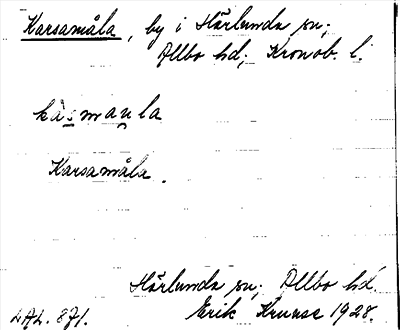 Karsamåla, by i Härlunda sn;
Allbo hd; Kronob. l.
kàsmaula
Karsamåla.
Härlunda sn; Allbo hd.
LAL. 871. Erik Kruuse 1928.